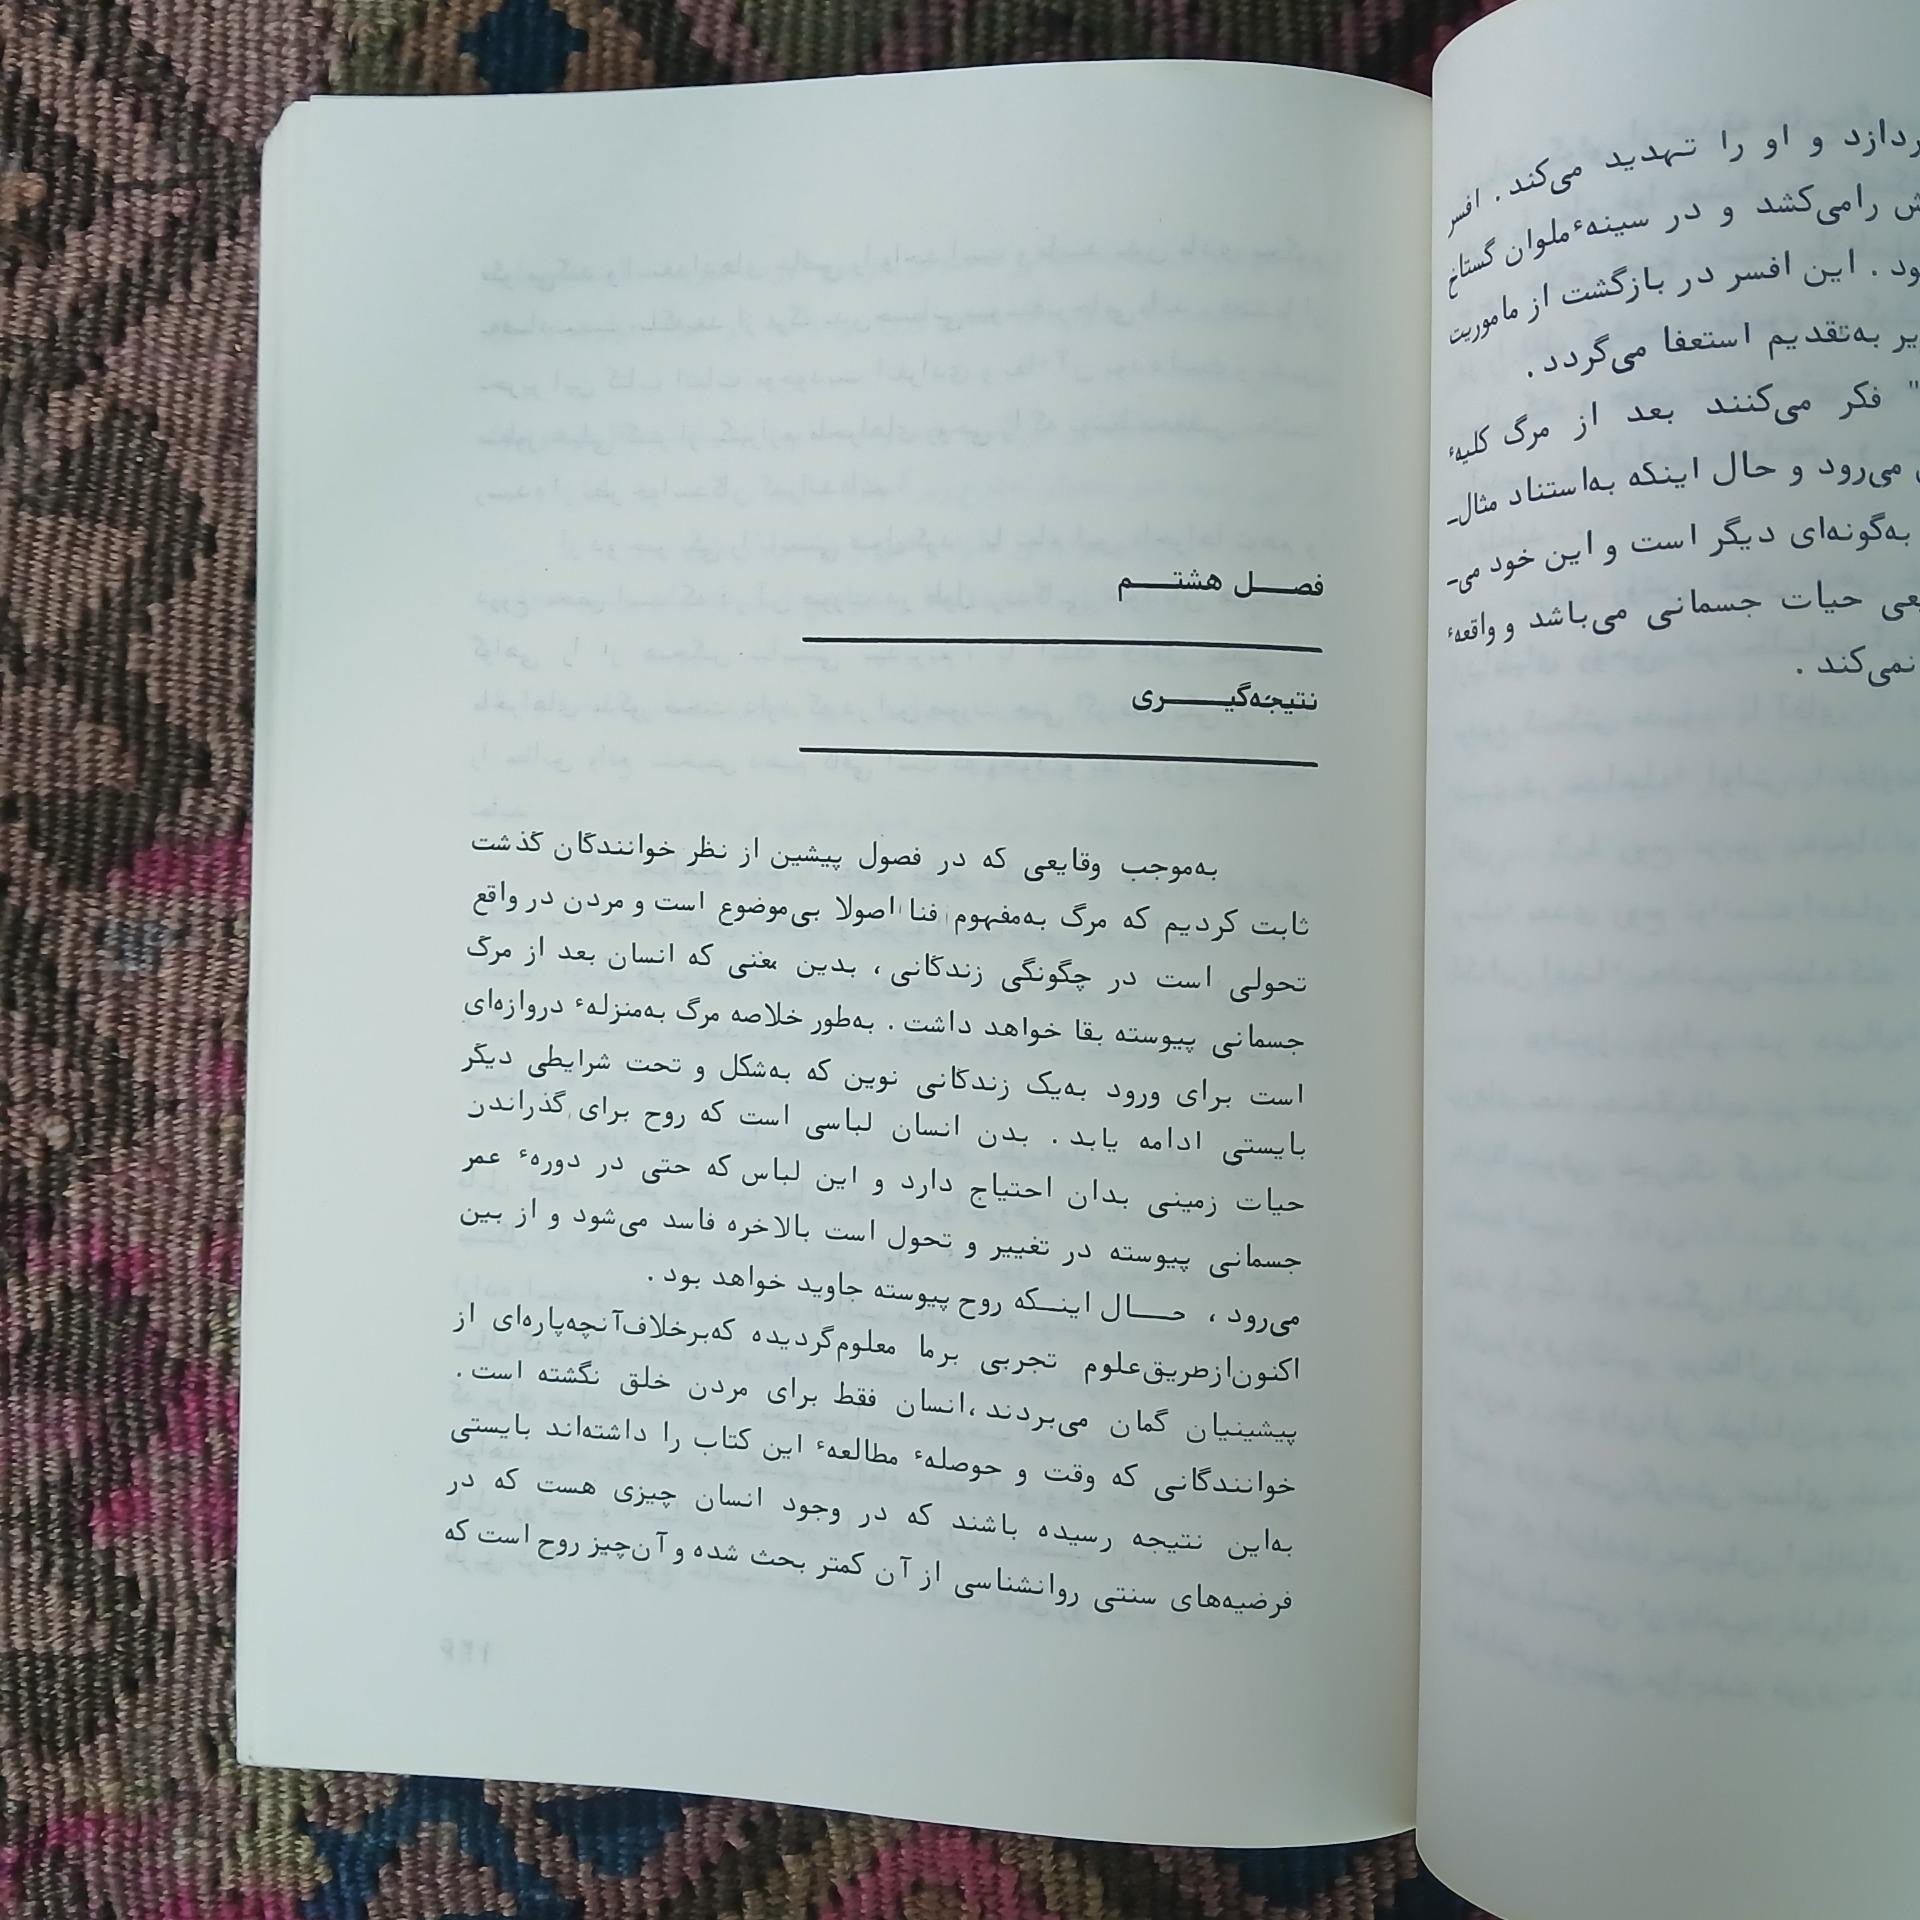 ردازد و او را تهدید می‌کند . افسر
ش رامی‌کشد و در سینهٔ ملوان گستاخ
ود . این افسر در بازگشت از ماموریت
یر به‌تقدیم استعفا می‌گردد .
" فکر می‌کنند بعد از مرگ کلیهٔ
می‌رود و حال اینکه به‌استناد مثال‌ـ
به‌گونه‌ای دیگر است و این خود می‌ـ
یعی حیات جسمانی می‌باشد و واقعهٔ
نمی‌کند .
فصل هشتم
نتیجه‌گیری
به‌موجب وقایعی که در فصول پیشین از نظر خوانندگان گذشت
ثابت کردیم که مرگ به‌مفهوم فنا اصولا بی‌موضوع است و مردن در واقع
تحولی است در چگونگی زندگانی ، بدین معنی که انسان بعد از مرگ
جسمانی پیوسته بقا خواهد داشت . به‌طور خلاصه مرگ به‌منزلهٔ دروازه‌ای
است برای ورود به‌یک زندگانی نوین که به‌شکل و تحت شرایطی دیگر
بایستی ادامه یابد . بدن انسان لباسی است که روح برای گذراندن
حیات زمینی بدان احتیاج دارد و این لباس که حتی در دورهٔ عمر
جسمانی پیوسته در تغییر و تحول است بالاخره فاسد می‌شود و از بین
می‌رود ، حال اینکه روح پیوسته جاوید خواهد بود .
اکنون از طریق علوم تجربی برما معلوم گردیده که برخلاف آنچه پاره‌ای از
پیشینیان گمان می‌بردند ،انسان فقط برای مردن خلق نگشته است .
خوانندگانی که وقت و حوصلهٔ مطالعهٔ این کتاب را داشته‌اند بایستی
به‌این نتیجه رسیده باشند که در وجود انسان چیزی هست که در
فرضیه‌های سنتی روانشناسی از آن کمتر بحث شده و آن‌چیز روح است که